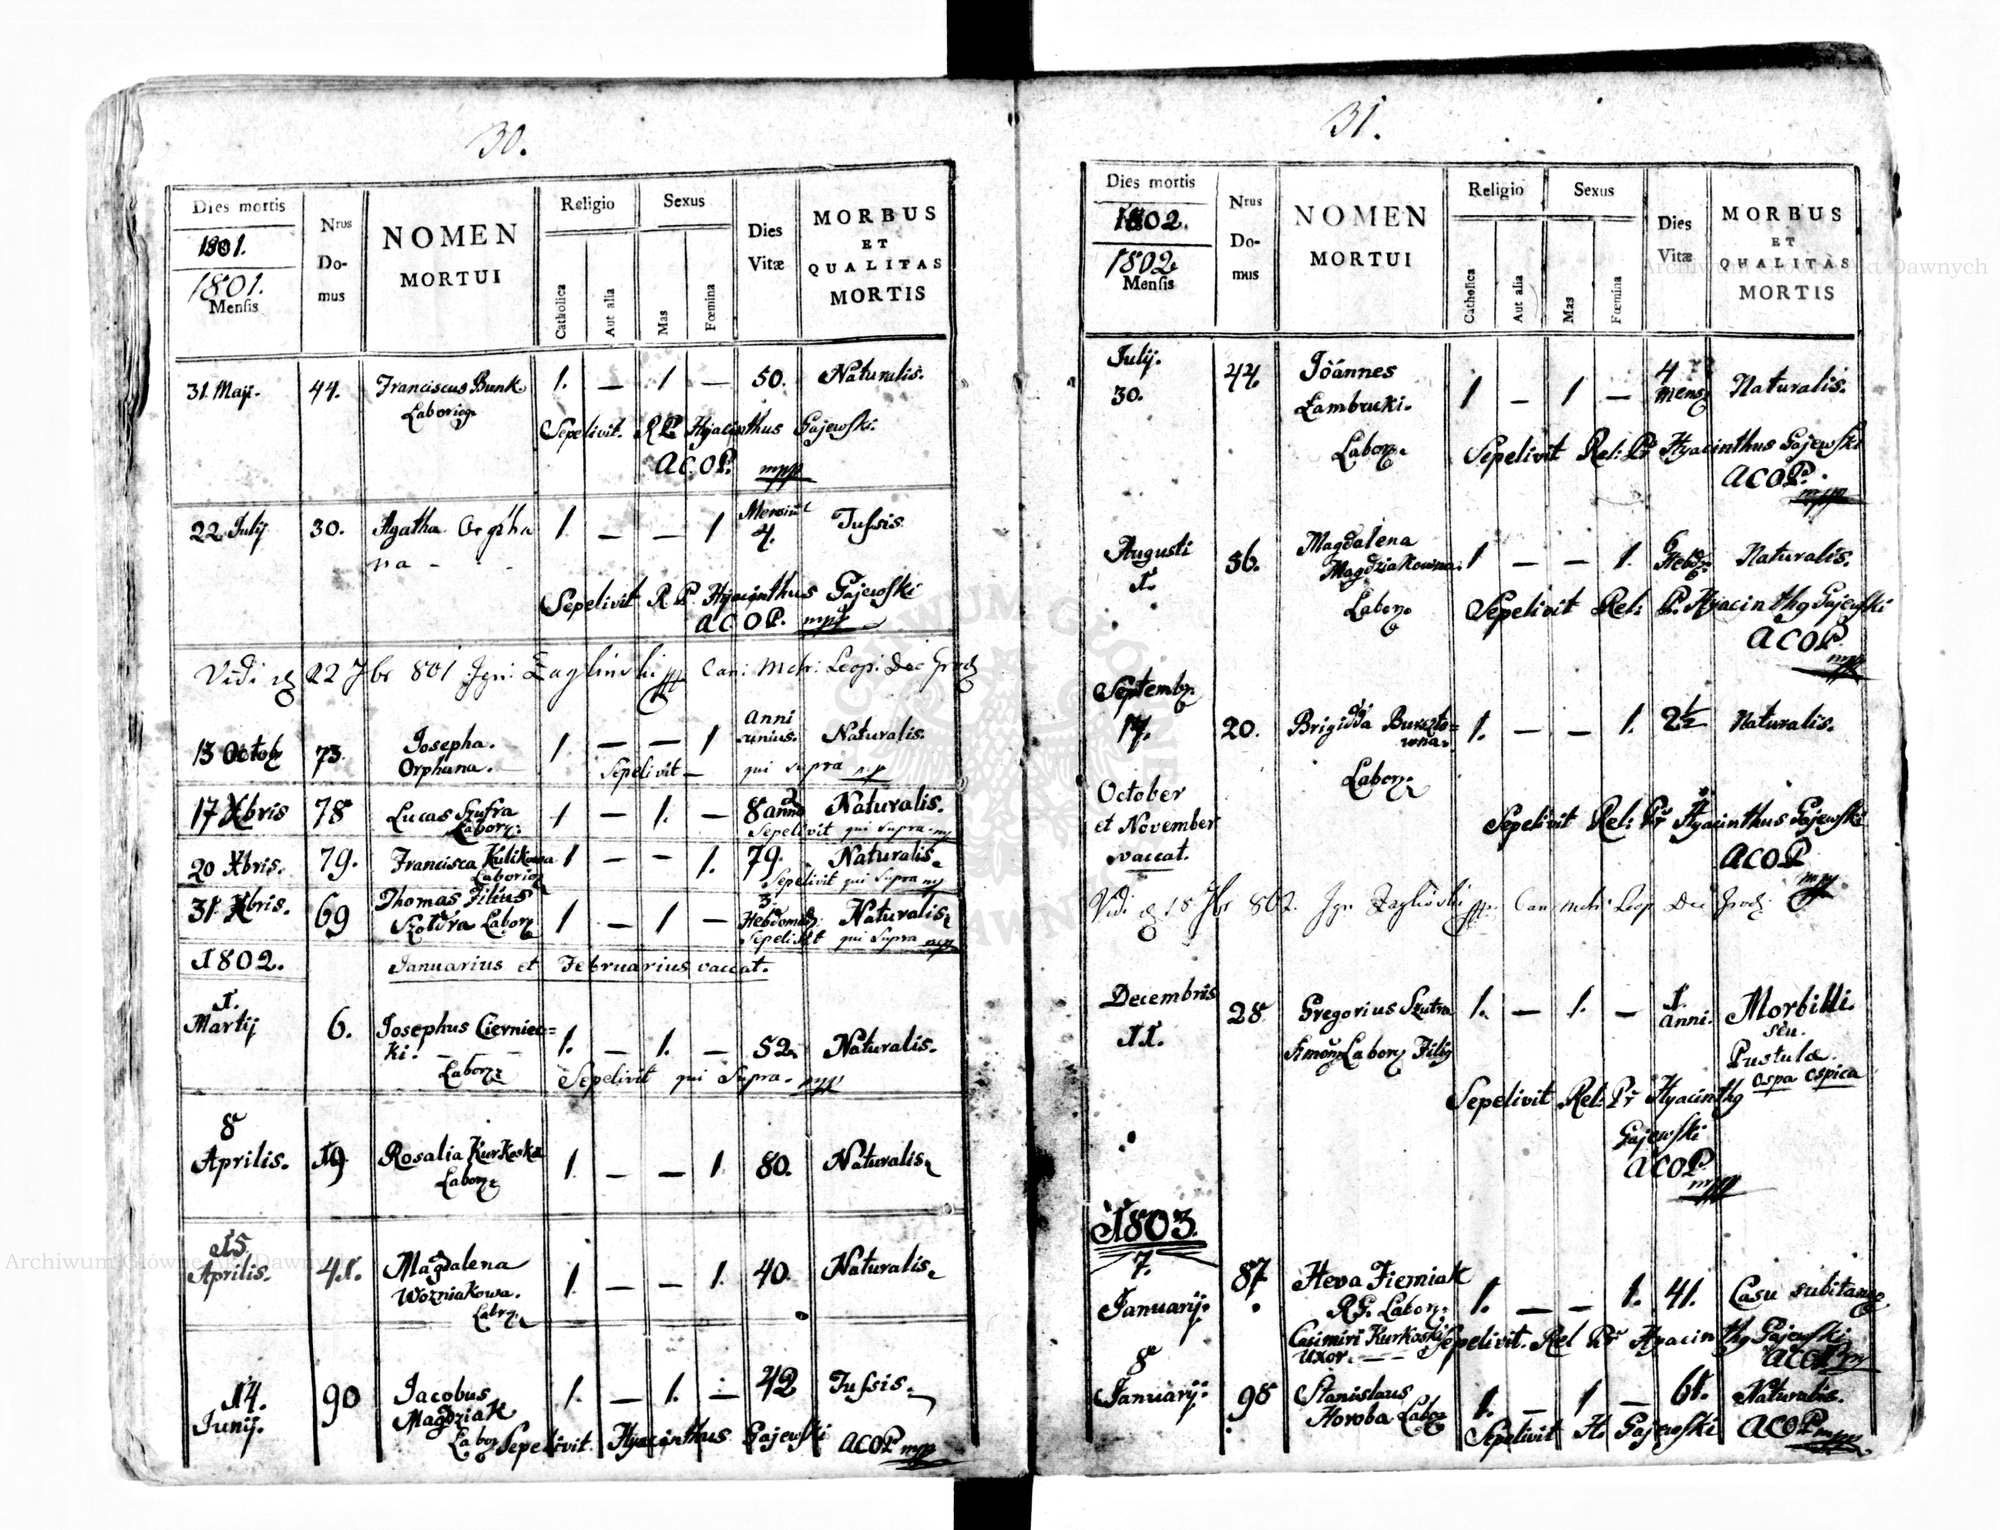 30.
Dies mortis
1801.
1801.
Mensis
Nrus
Do-
mus
NOMEN
MORTUI
Religio
Catholica
Aut alia
Sexus
Mas
Fœmina
Dies
Vitæ
MORBUS
ET
QUALITAS
MORTIS
31 Maji. 44. Franciscus Bunk 1. — 1 — 50. Naturalis.
Sepelivit. R P. Hyacinthus Gajewski.
ACOP. mpp
22 Julij 30. Agatha Orpha 1 — — 1 4. Tussis
na -
Sepelivit R P. Hyacinthus Gajewski
ACOP. mpp
Vidi 22 7br 801 Ign: Can: Leop: Dec
13 Octob 73. Josepha. 1. — — 1 anni unius. Naturalis.
Orphana. Sepelivit — qui supra mp
17 Xbris 78 Lucas Szufra 1 — 1. — 8 Naturalis.
Labor: Sepelivit qui supra mp
20 Xbris. 79. Francisca Kulikowa 1 — — 1. 79. Naturalis.
Sepelivit qui supra mp
31 Xbris. 69 Thomas Filius 3.
Labor 1 — 1 — Hebdomad: Naturalis
Sepelivit qui supra mpp
1802. Januarius et Februarius vaccat.
1.
Martij 6. Josephus Cierniec=
ki. 1. — 1. — 52. Naturalis.
Labor:
Sepelivit qui supra. mpp
8
Aprilis. 19 Rosalia Kurkoska 1. — — 1 80. Naturalis
Labor:
15
Aprilis. 41. Magdalena 1 — — 1. 40. Naturalis.
Wozniakowa.
14. 90 Jacobus 1. — 1. — 42 Tussis.
Junij. Magdziak
Labor Sepelivit. Hyacinthus Gajewski ACOP mpp
31.
Dies mortis
1802.
1802
Mensis
Nrus
Do-
mus
NOMEN
MORTUI
Religio
Catholica
Aut alia
Sexus
Mas
Fœmina
Dies
Vitæ
MORBUS
ET
QUALITAS
MORTIS
Julij. 44. Joannes 4
30. Zambrucki. 1 — 1 — mens Naturalis.
Labor. Sepelivit Rel: Pr Hyacinthus Gajewski
ACOP.
mpp
Augusti 56. Magdalena 6
1. Magdziakowna. 1 — — 1. Hebd: Naturalis.
Labor Sepelivit Rel: P. Hyacinthg Gajewski
ACOP.
mpp
Septemb.
17. 20. Brigidda Burszto= 1. — — 1. 2½ Naturalis.
wna.
Labor:
October
et November Sepelivit Rel: Pr Hyacinthus Gajewski
vaccat. ACOP
mpp
Vidi 802. Ign Can Leop Dec
Decembris 28 Gregorius Szutra 1. — 1. — 1. Morbilli.
11. Labor Filig anni. seu.
Pustulæ.
ospa ospica
Sepelivit Rel: Pr Hyacinthg
Gajewski
ACOP.
mpp
1803.
7. 87. Heva Fierniak
Januarij. Labor: 1. — — 1. 41. Casu subitaneo
Casimiri Kurkoski Sepelivit. Rel Pr Hyacinthg Gajewski
Uxor. — — ACOP
8
Januarij. 98 Stanislaus 1. — 1 — 61. Naturalis.
Horoba Labor Sepelivit H. Gajewski ACOP mpp
Archiwum Główne Akt Dawnych
Archiwum Główne Akt Dawnych
ARCHIWUM GŁÓWNE AKT DAWNYCH